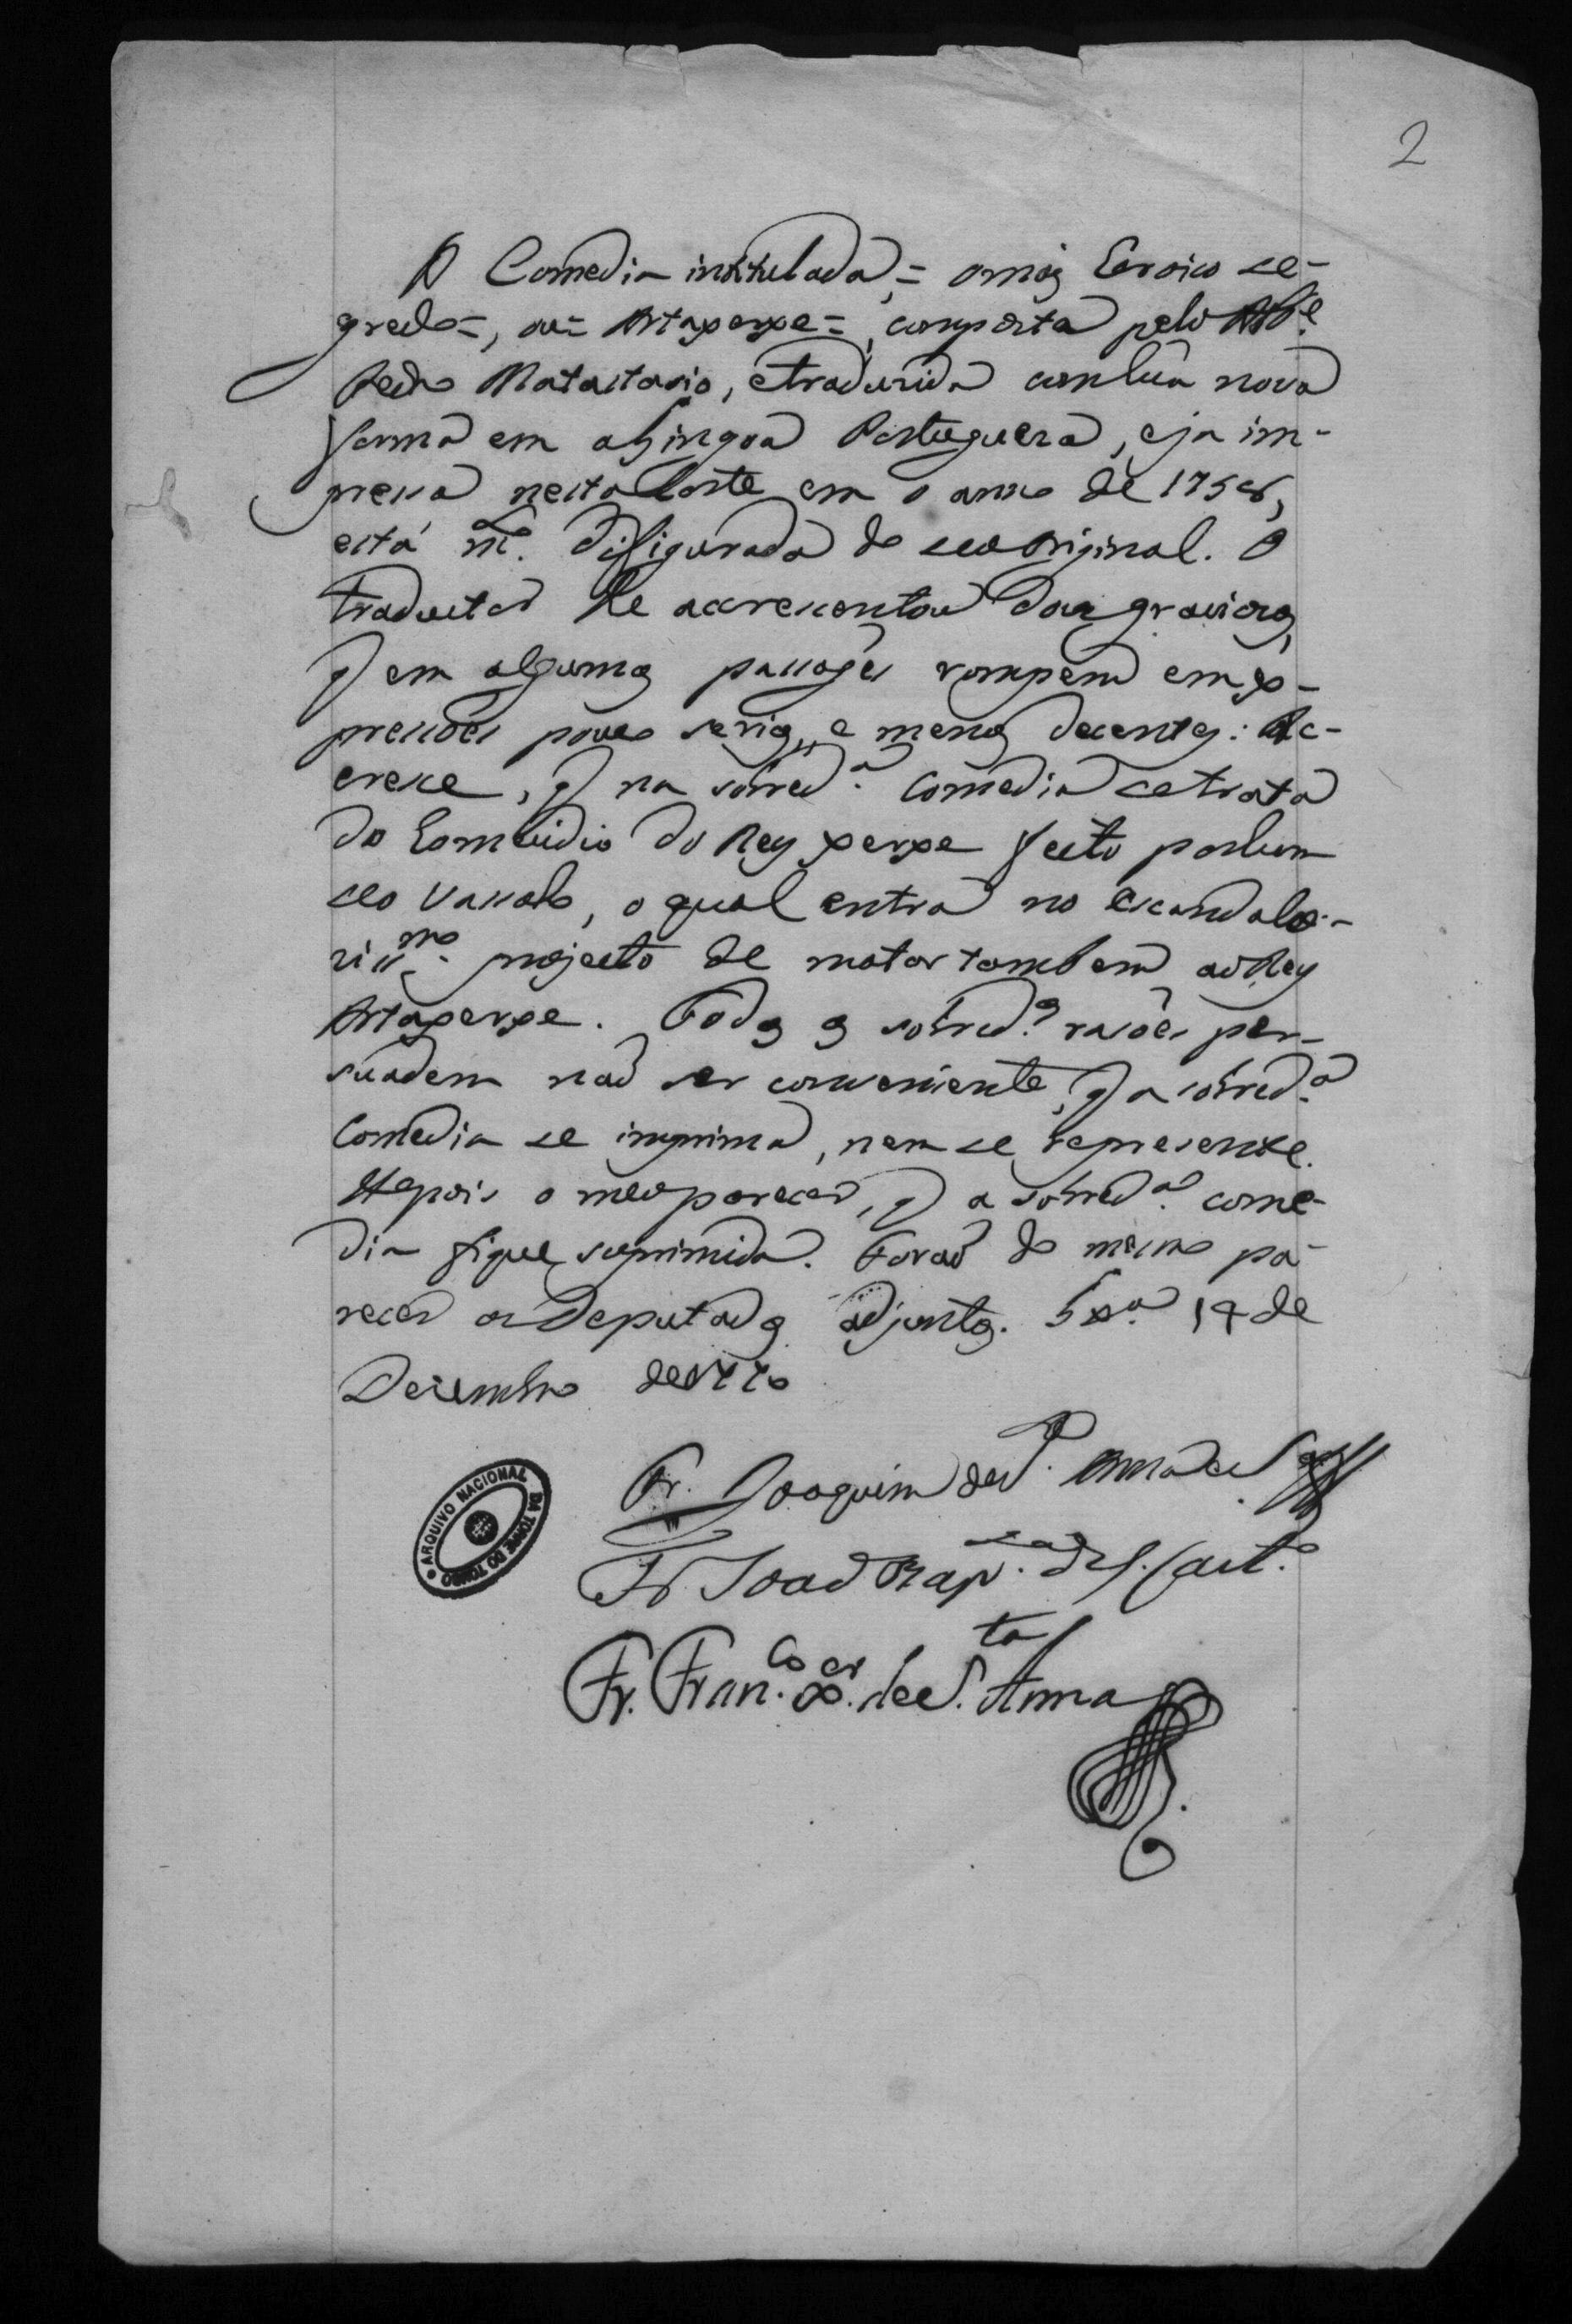 2
A Comedia intitulada, = o mais Eroico se-
gredo =, ou = Artaxerxe =, composta pelo Abb.e
Pedro Matastasio, e traduzida com hũa nova
forma em a Lingoa Portugueza, e ja im-
pressa nesta Corte em o anno de 1758,
está m.to disfigurada do seo original. O
traductor lhe accrescentou dous graciosos,
q em algumas passages rompem em ex-
pressoẽs pouco serias, e menos decentes: Ac-
cresce, q na sobred.a Comedia se trata
do Homicidio do Rey Xerxe feito por hum
seo Vassalo, o qual entra no escandalo-
siss.mo projecto de matar tambem ao Rey
Artaxerxe. Todas as sobred.as rasoẽs per-
suadem naõ ser conveniente, q a sobred.a
Comedia se imprima, nem se represente.
He pois o meo parecer, q a sobred.a come-
dia fique suprimida. Foraõ do mesmo pa-
recer os Deputados adjuntos. Lx.a 14 de
Dezembro de 1770
Fr. Joaquim de S. Anna e S.a
Fr. Joaõ Bap.ta de S. Caet.o
Fr. Fran.co X.er de S.ta Anna
ARQUIVO NACIONAL
DA TORRE DO TOMBO